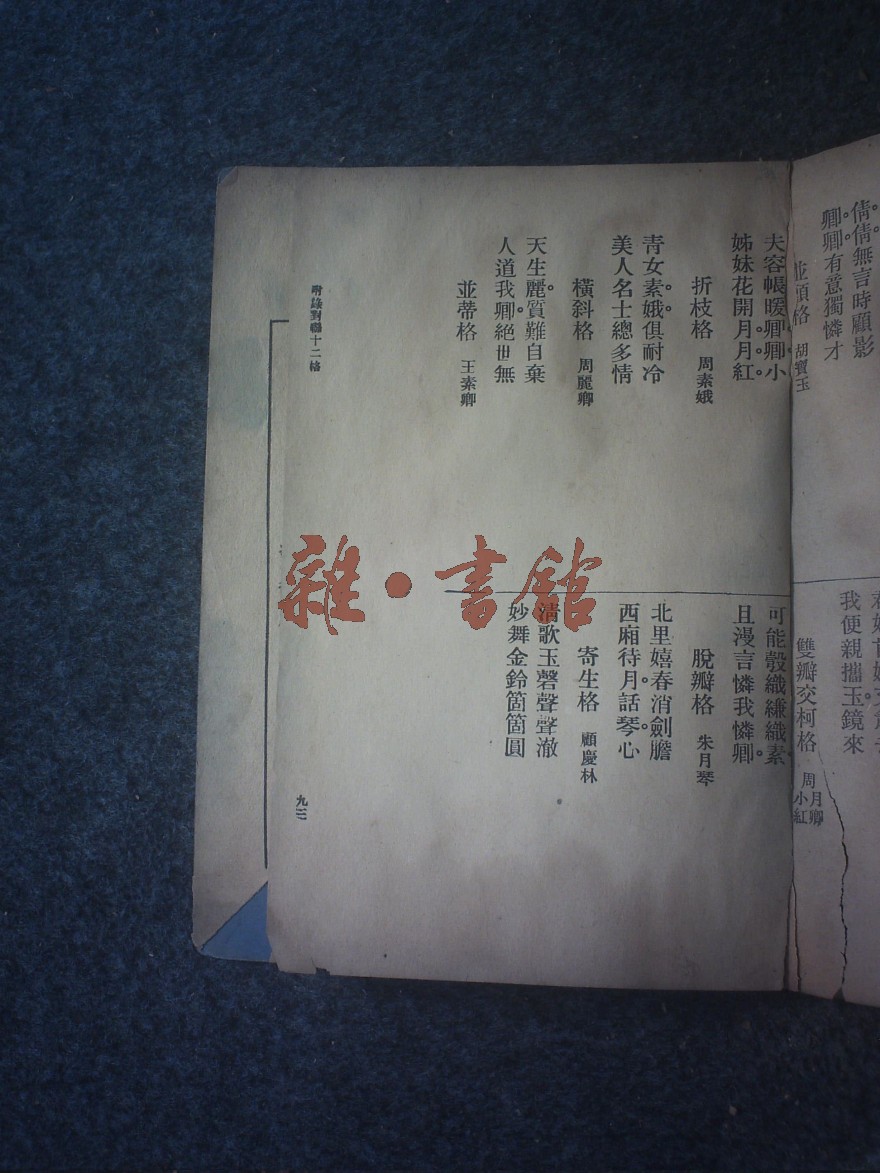 倩倩無言時顧影
卿卿有意獨憐才
並頭格 胡寶玉
夫容帳暖卿卿小
姊妹花開月月紅
折枝格 周素娥
青女素娥俱耐冷
美人名士總多情
橫斜格 周麗卿
天生麗質難自棄
人道我卿絕世無
並蒂格 王素卿
我便親攜玉鏡來
雙瓣交柯格 周月卿 小紅
可能殼織縑織素
且漫言憐我憐卿
脫瓣格 朱月琴
北里嬉春消劍膽
西廂待月話琴心
寄生格 顧慶林
清歌玉磬聲聲澈
妙舞金鈴箇箇圓
附錄對聯十二格
九三
雜·書館